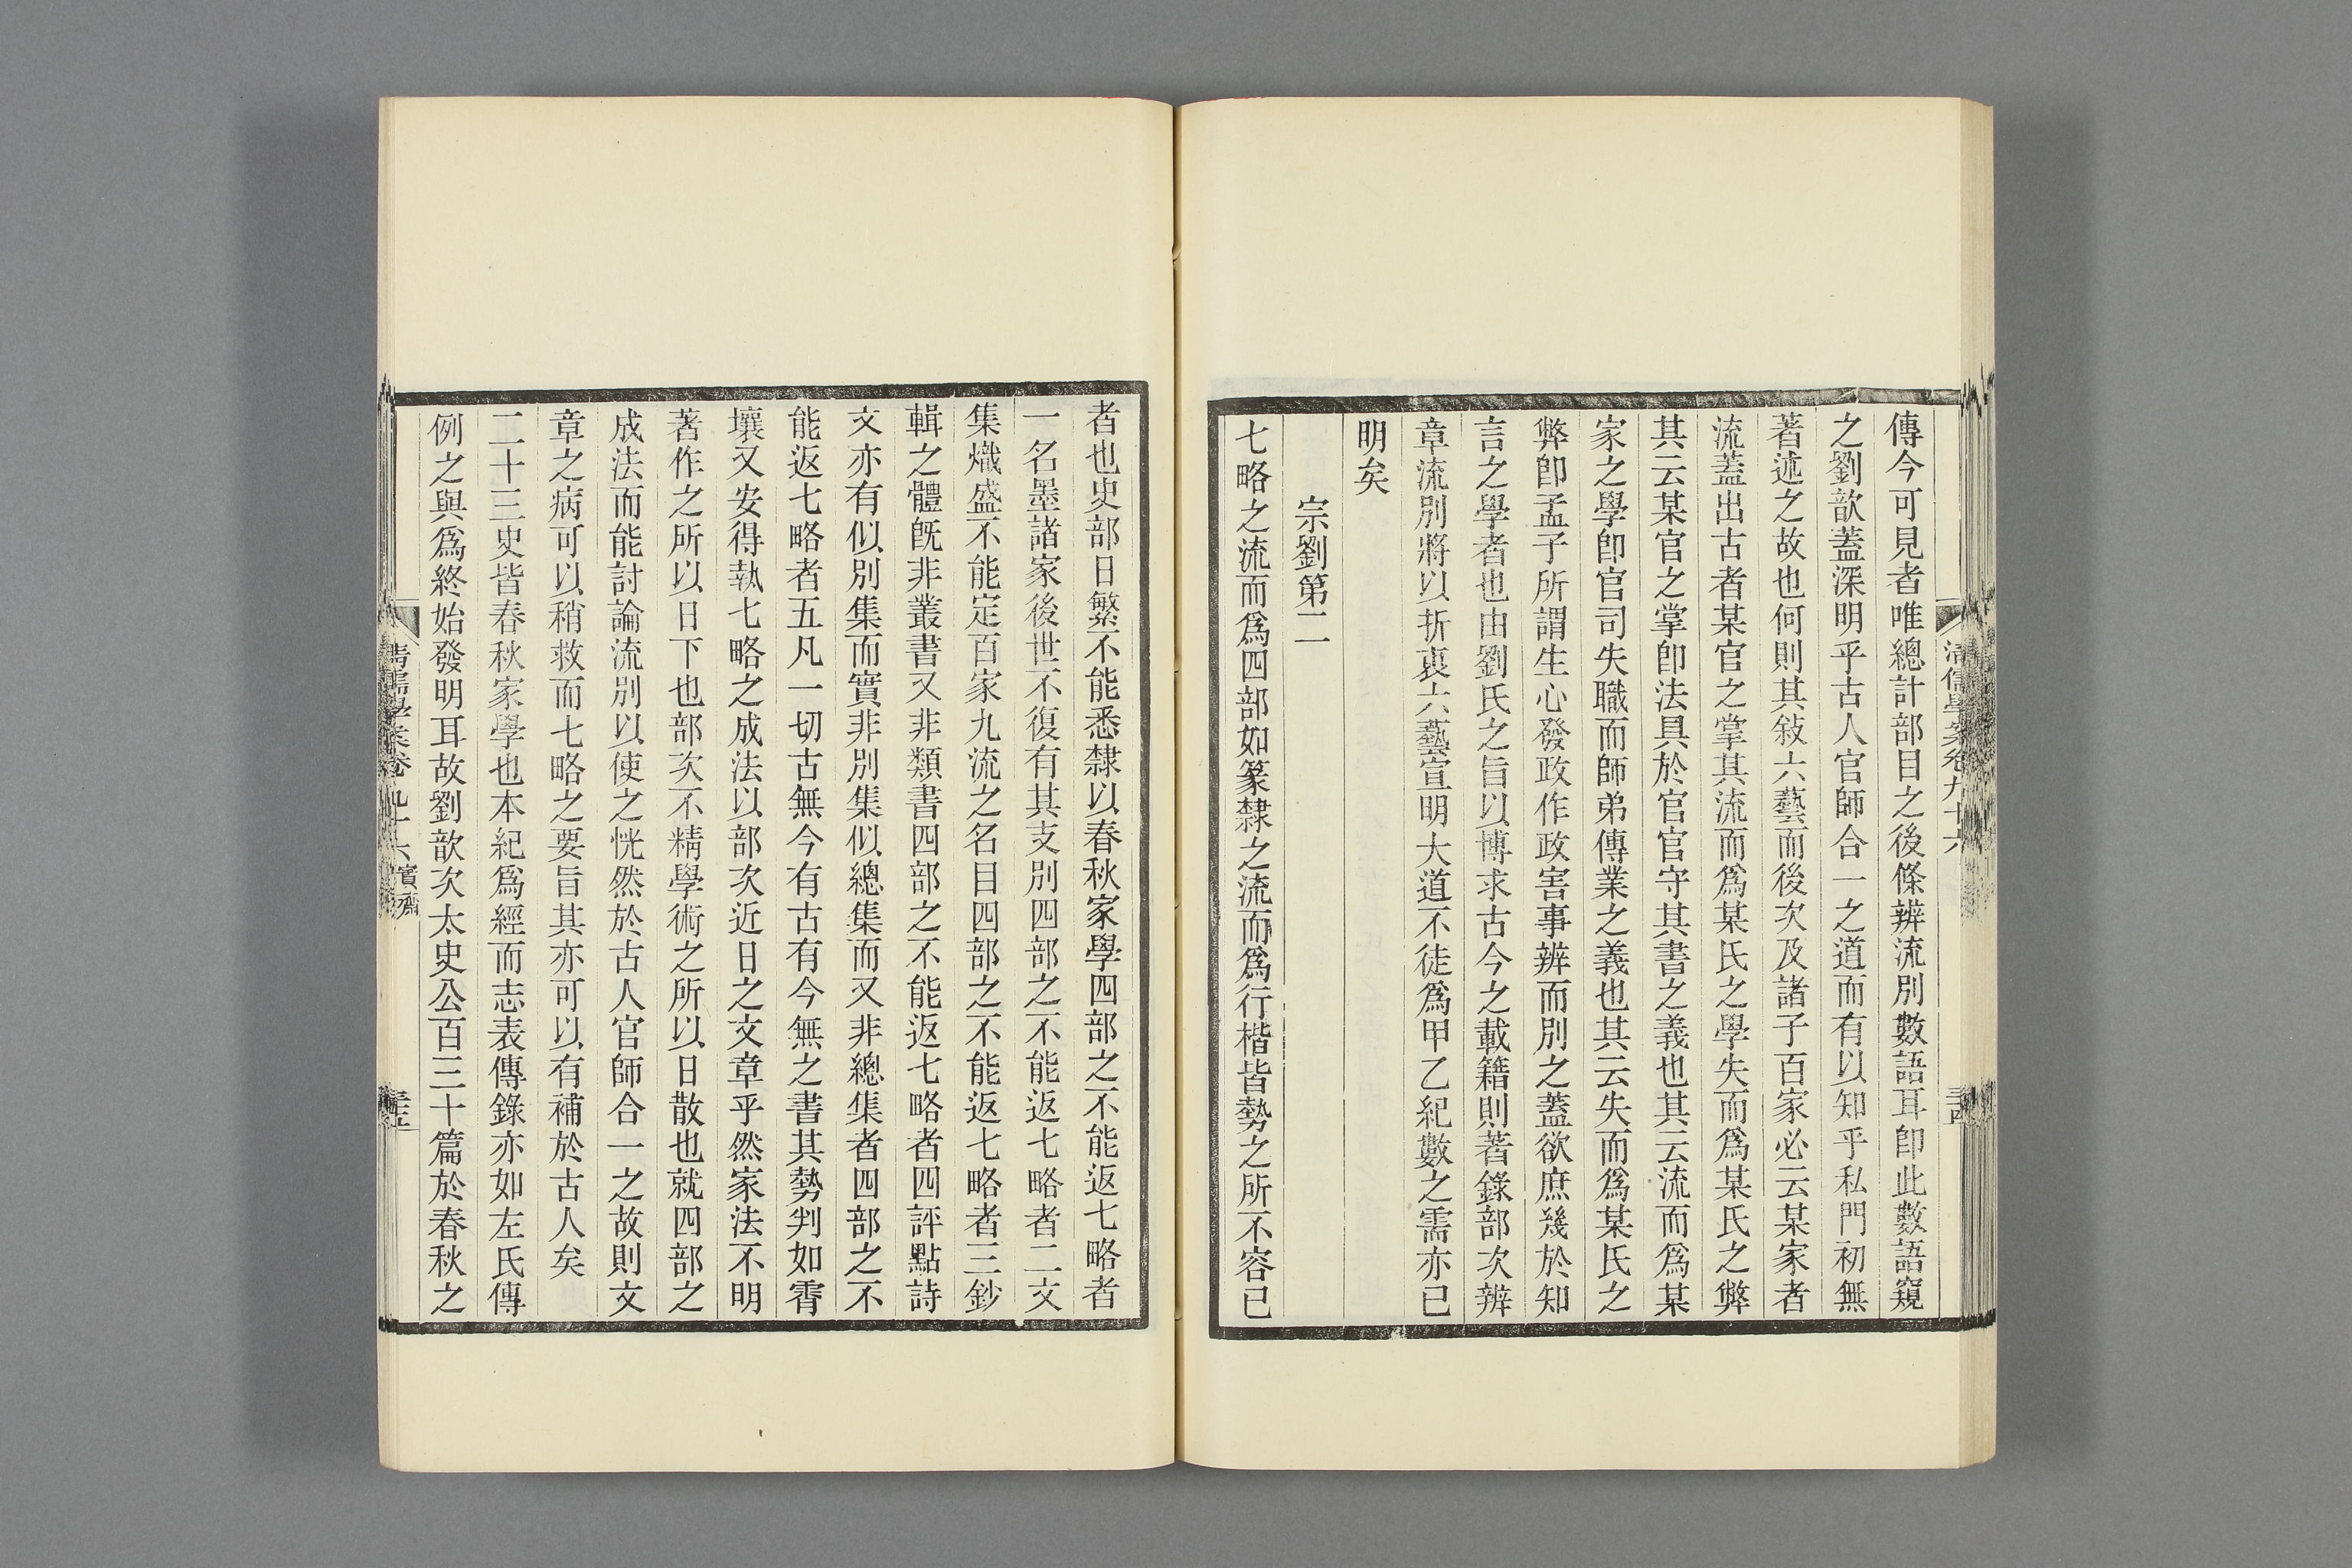 清儒學案卷九十六
傳今可見者唯總計部目之後條辨流別數語耳卽此數語窺
之劉歆蓋深明乎古人官師合一之道而有以知乎私門初無
著述之故也何則其敍六藝而後次及諸子百家必云某家者
流蓋出古者某官之掌其流而爲某氏之學失而爲某氏之弊
其云某官之掌卽法具於官官守其書之義也其云流而爲某
家之學卽官司失職而師弟傳業之義也其云失而爲某氏之
弊卽孟子所謂生心發政作政害事辨而別之蓋欲庶幾於知
言之學者也由劉氏之旨以博求古今之載籍則著錄部次辨
章流別將以折衷六藝宣明大道不徒爲甲乙紀數之需亦已
明矣
宗劉第二
七略之流而爲四部如篆隸之流而爲行楷皆勢之所不容已
者也史部日繁不能悉隸以春秋家學四部之不能返七略者
一名墨諸家後世不復有其支別四部之不能返七略者二文
集熾盛不能定百家九流之名目四部之不能返七略者三鈔
輯之體旣非叢書又非類書四部之不能返七略者四評點詩
文亦有似別集而實非別集似總集而又非總集者四部之不
能返七略者五凡一切古無今有古有今無之書其勢判如霄
壤又安得執七略之成法以部次近日之文章乎然家法不明
著作之所以日下也部次不精學術之所以日散也就四部之
成法而能討論流別以使之恍然於古人官師合一之故則文
章之病可以稍救而七略之要旨其亦可以有補於古人矣
二十三史皆春秋家學也本紀爲經而志表傳錄亦如左氏傳
例之與爲終始發明耳故劉歆次太史公百三十篇於春秋之
清儒學案卷九十六 實齋